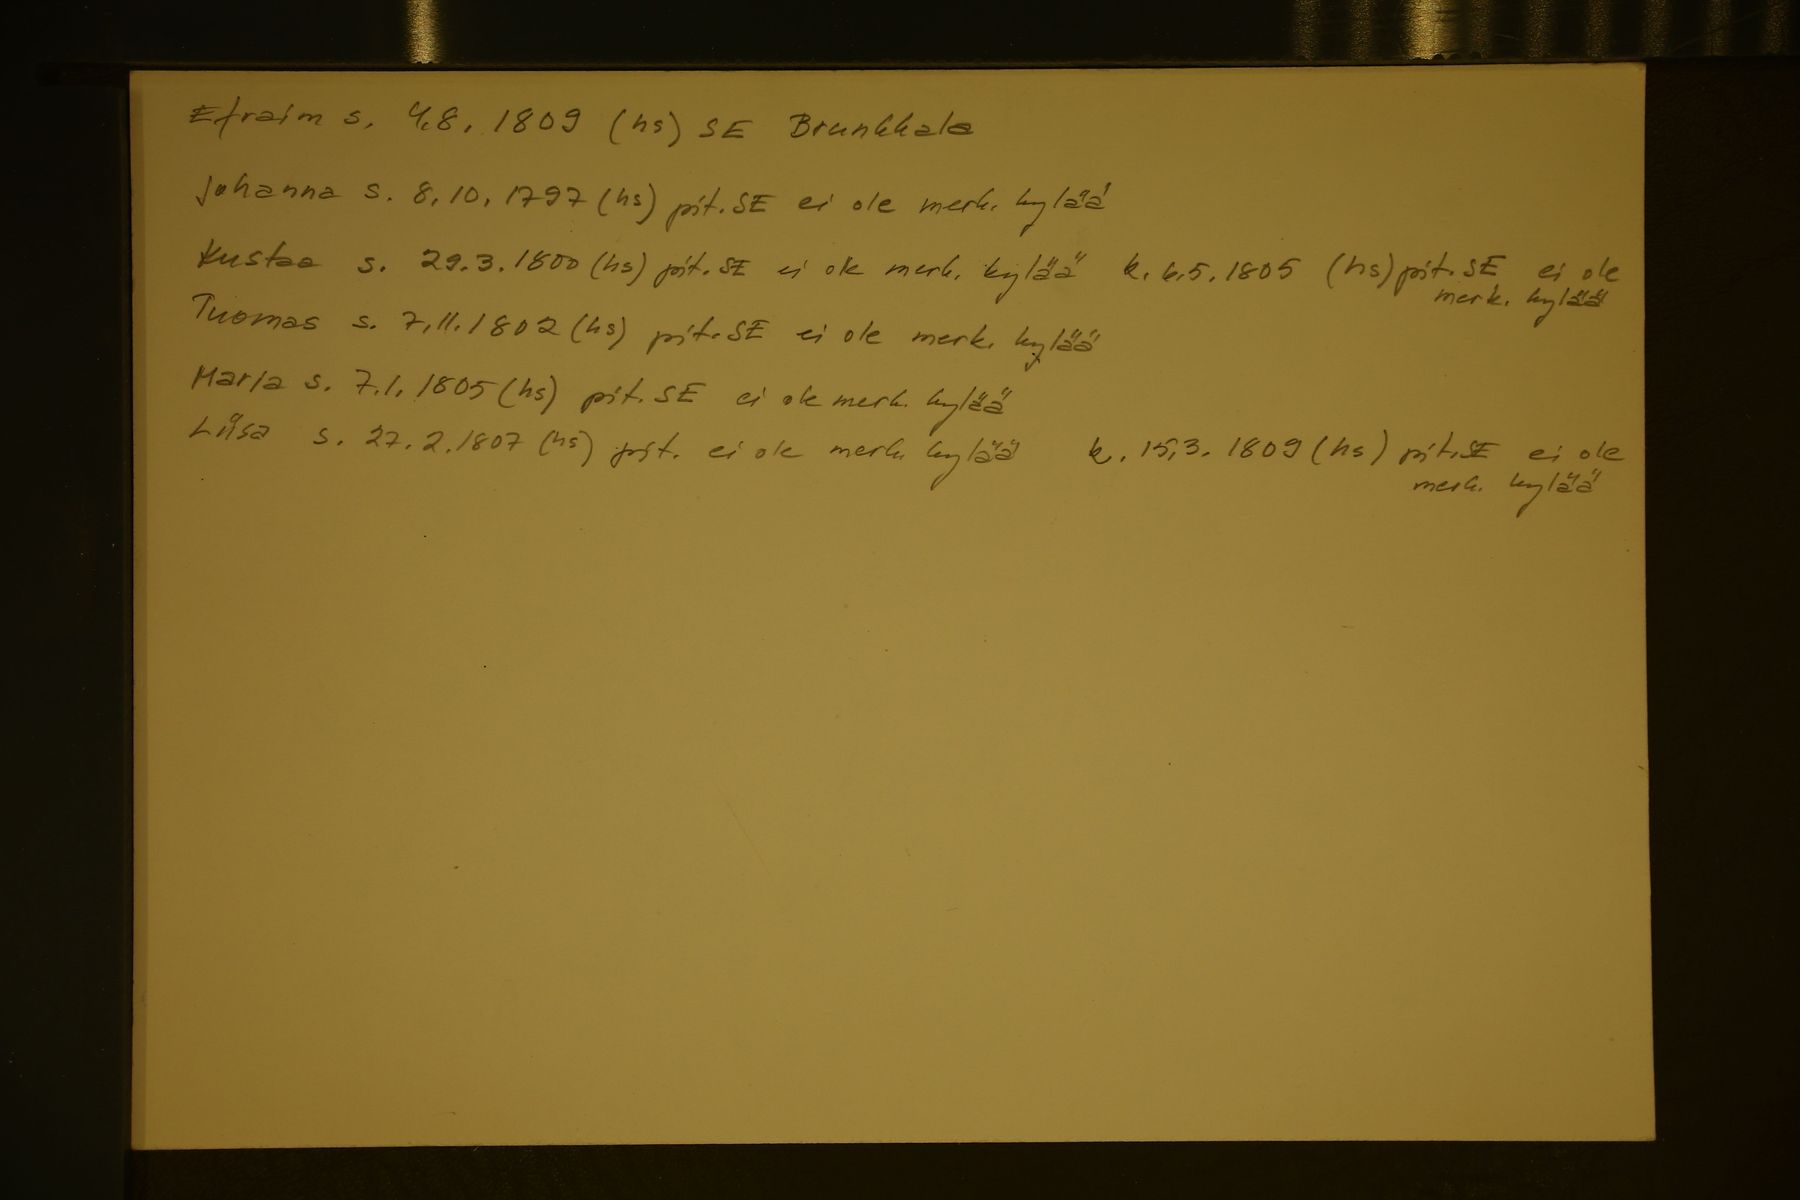 Efraim s. 4.8. 1809 (hs) SE Brunkkala
Johanna s. 8.10.1797 (hs) pit. SE ei ole merk. kylää
Kustaa s. 29.3.1800 (hs) pit. SE ei ole merk. kylää k. 6.5.1805 (hs) pit. SE ei ole
merk. kylää
Tuomas s. 7.11.1802 (hs) pit. SE ei ole merk. kylää
Maria s. 7.1.1805 (hs) pit. SE ei ole merk. kylää
Liisa s. 27.2.1807 (hs) pit. ei ole merk. kylää k. 15.3.1809 (hs) pit. SE ei ole
merk. kylää